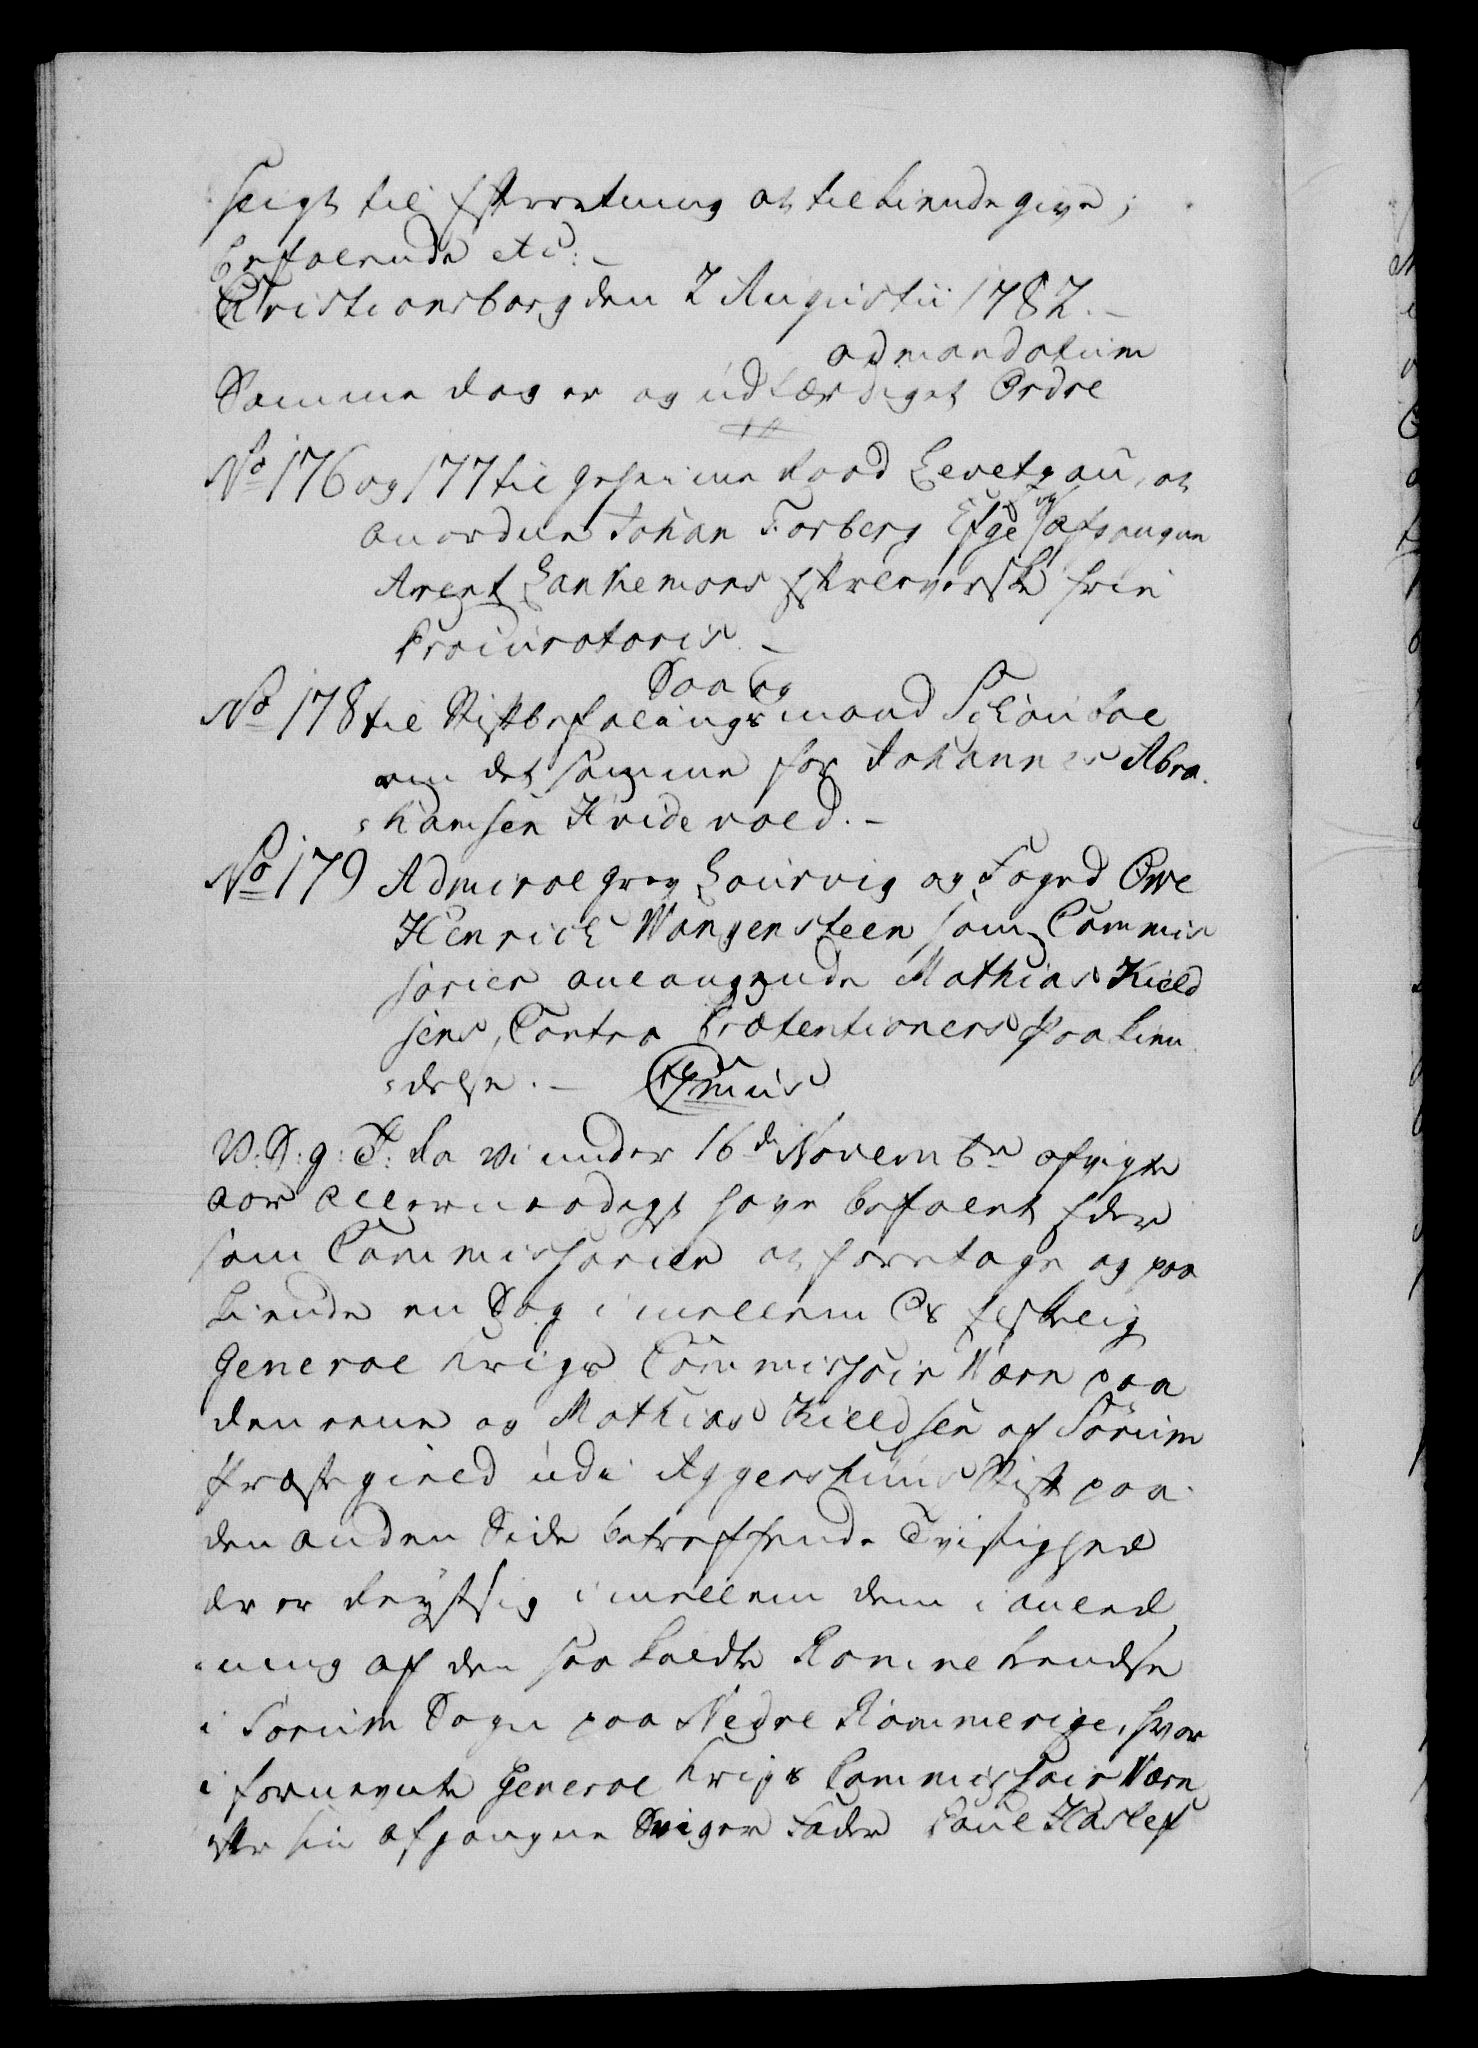 seigt til Efterretning at tilkiende give;
Befalende etc: –
Christiansborg den 2 Augustii 1782. –
ad mandatum
Samme dag er og udfærdiget Ordre
No 176 og 177 til geheime Raad Levetzau, at
anordne Johan Forberg Esge og afgangne
Arent Lankemans Efterleverske frie
Procuratoris. –
Dato og
No 178 til Stiftbefalingsmand Schouboe
om det samme for Johannes Abra-
hamsen Hvidevold. –
No 179 Admiral grev Laurvig og Foged Ove
Henrich Wangensteen som Commis
sarier anlangende Mathias Kield
sens, Contra Prætentioners Paakien
delse. –
V: S: g: T: Da vi under 16de Novembr afvigte
Aar allernaadigst have befalet Eder
som Commissarier at foretage og paa
kiende en Sag imellem Os Elskelig
General Krigs Commissair Værn paa
den eene og Mathias Kieldsen af Sørum
Præstegield udi Aggershuus Stift paa
den anden Side betreffende Tvistighed
der er Reyst sig imellem dem i anled
ning af den saa kaldte Ramne hendse
i Sørum Sogn paa Nedre Rommerige, hvor
i fornevnte General Krigs Commissair Værn
efter sin afgangne Sviger Fader Poul Haslef